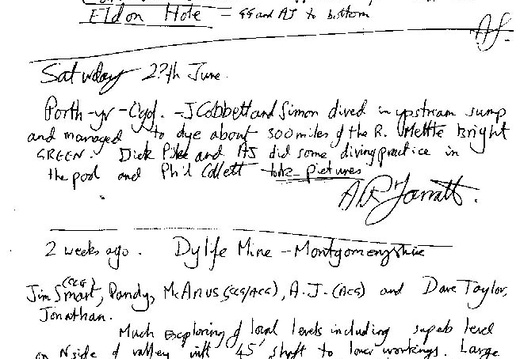 Eldon Hole = GG and AJ to bottom
AJ.
Saturday 27th June.
Porth-yr-Ogof. - J Cobbett and Simon dived in upstream sump
and managed to dye about 300 miles of the R. Mellte Bright
GREEN. Dick Pike and AJ did some diving practice in
the pool and Phil Collett took pictures
A R Jarratt.
2 weeks ago. Dylife Mine - Montgomeryshire
Jim Smart, (CCG) Randy, McAnus (CCG/ACG), A.J. (ACG) and Dave Taylor,
Jonathan.
Much exploring of local levels including superb level
on N side of valley with 45' shaft to lower workings. Large